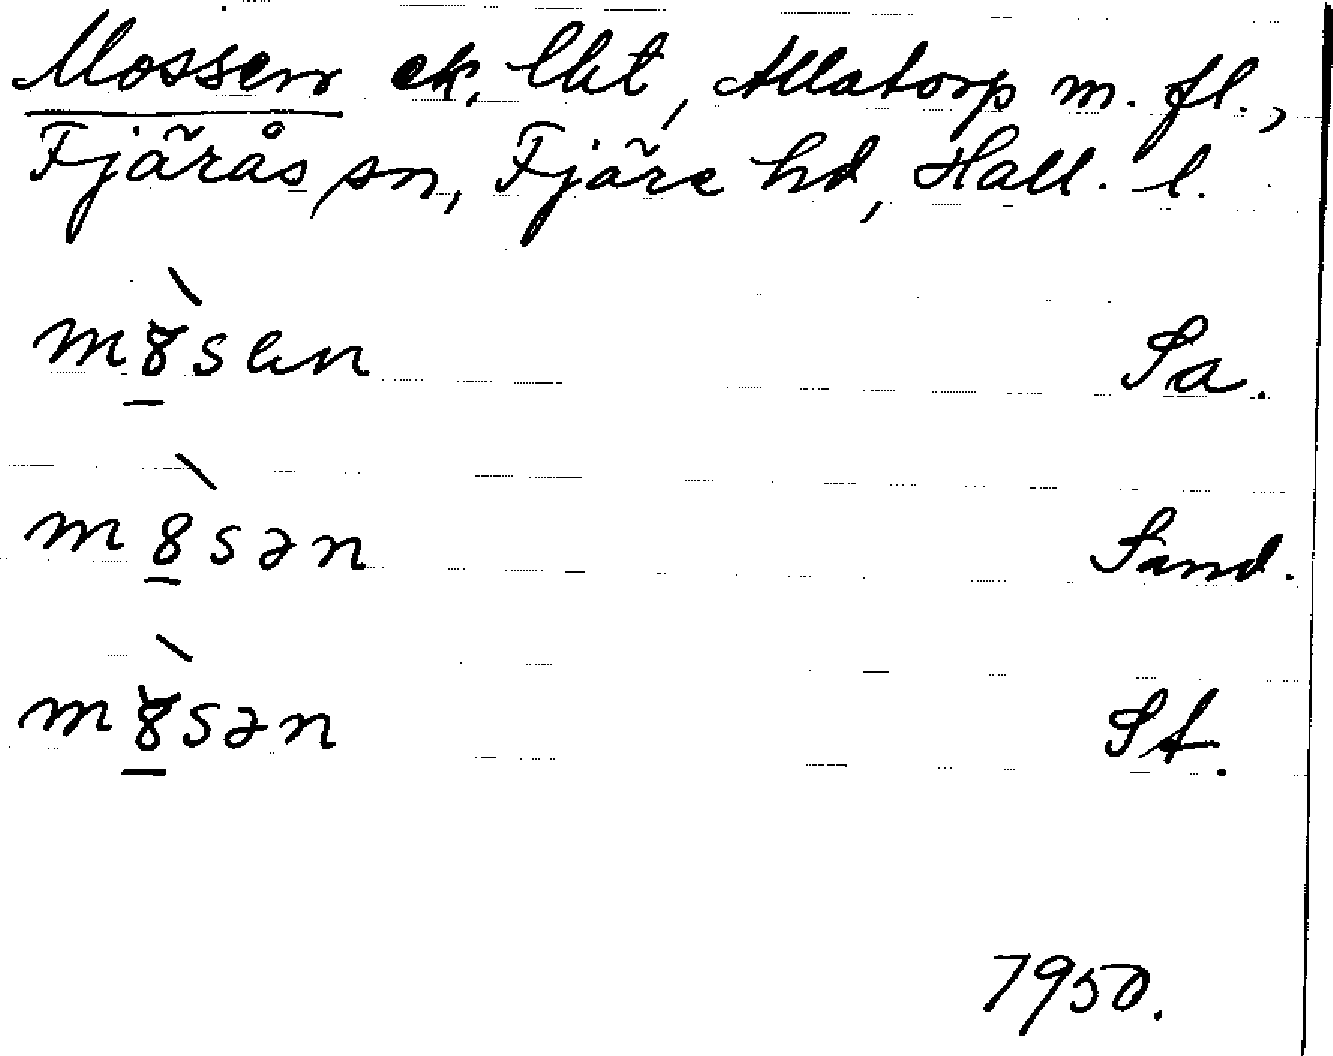 Mossen ek. lht, Allatorp m. fl.,
Fjärås sn, Fjäre hd, Hall. l.
m8̀sen Sa.
m8̀sən Sand.
m8̀sən St.
1950.